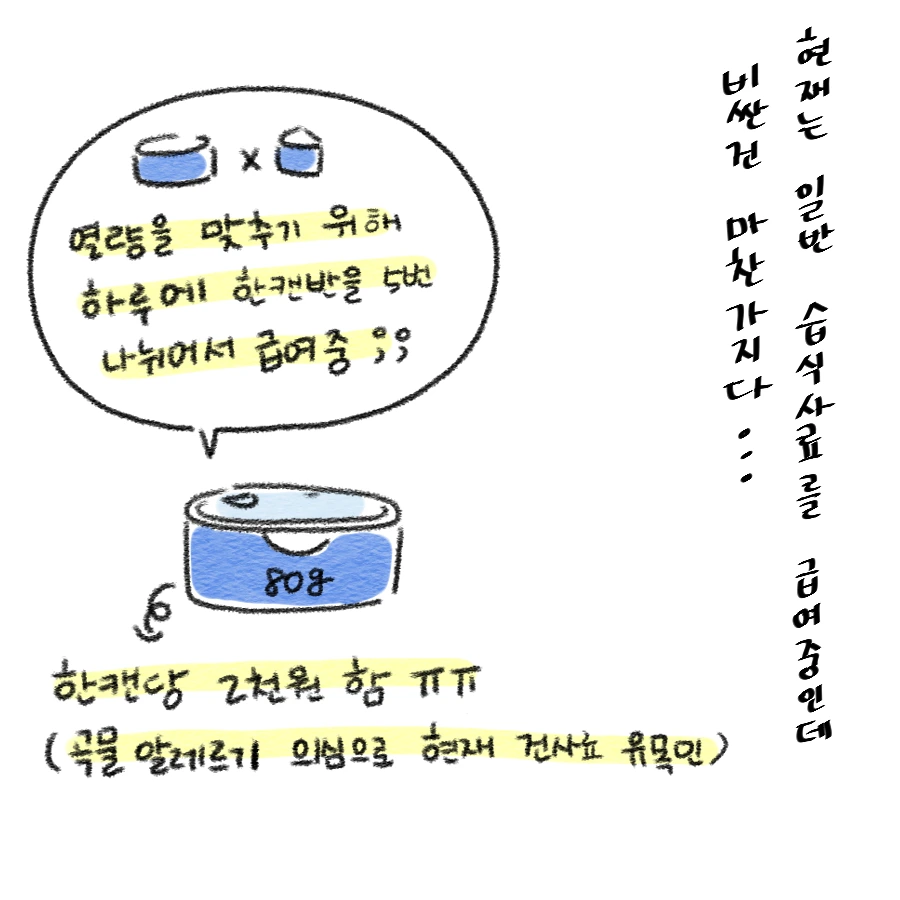 현재는 일반 습식사료를 급여중인데
비싼건 마찬가지다...
x
열량을 맞추기 위해
하루에 한캔반을 5번
나눠어서 급여중 ;;
80g
한캔당 2천원 함 ㅠㅠ
(곡물 알레르기 의심으로 현재 건사료 유목민)